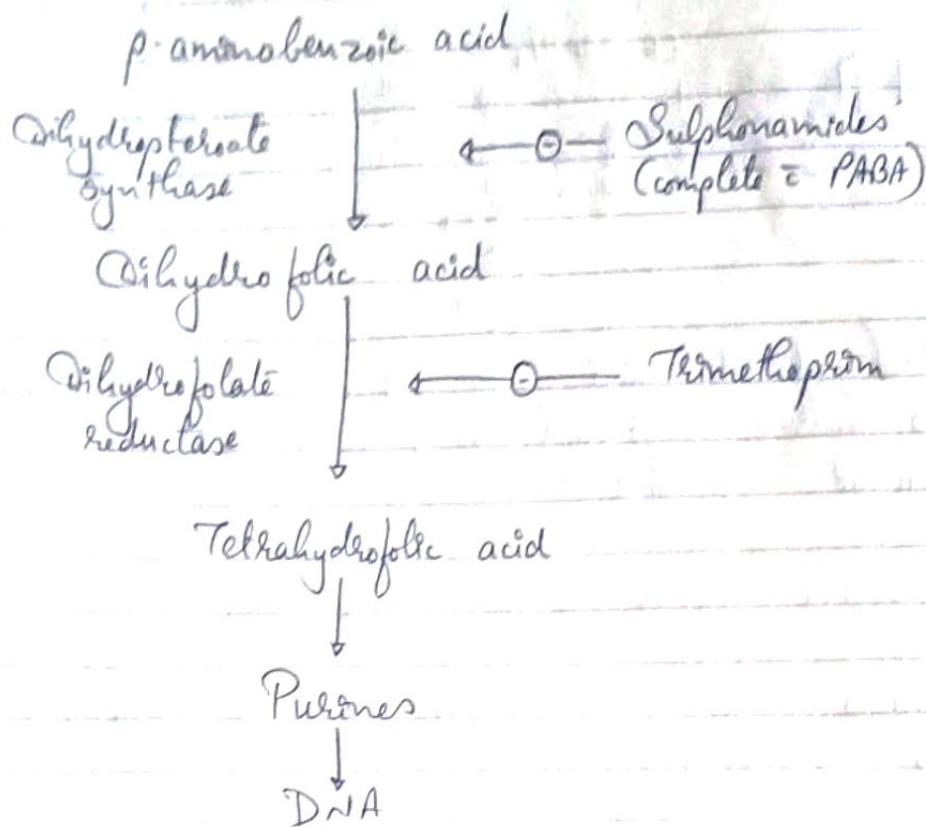 p-aminobenzoic acid
Dihydropteroate
synthase
⊖ Sulphonamides
(complete c̄ PABA)
Dihydrofolic acid
Dihydrofolate
reductase
⊖ Trimethoprim
Tetrahydrofolic acid
Purines
DNA